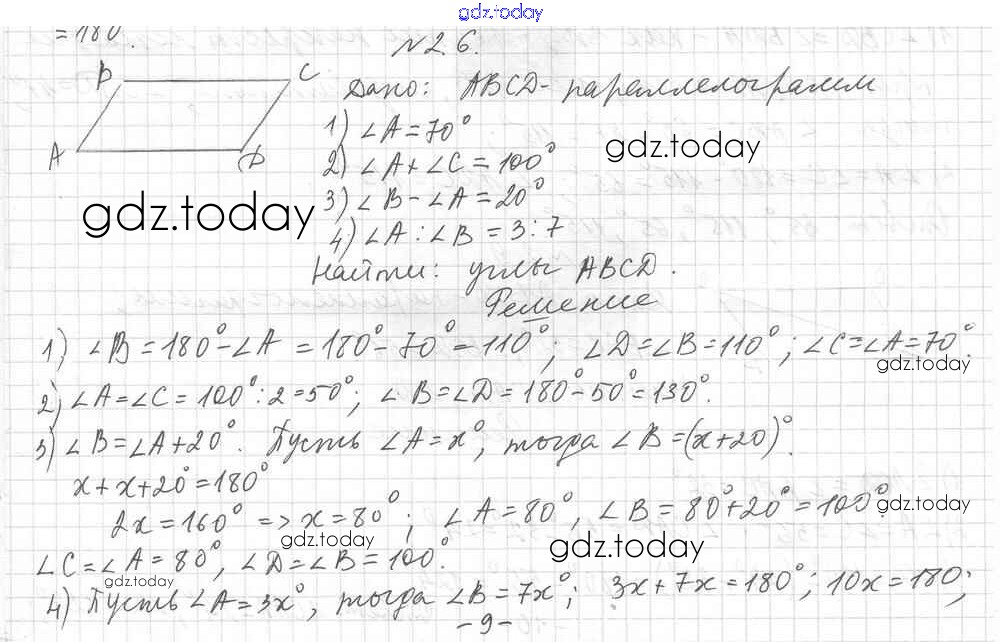 gdz.today
= 180°.
№ 2.6.
B C
A D
Дано: ABCD - параллелограмм
1) ∠A = 70°
gdz.today
2) ∠A + ∠C = 100°
gdz.today
3) ∠B - ∠A = 20°
4) ∠A : ∠B = 3 : 7
Найти: углы ABCD.
Решение
1) ∠B = 180° - ∠A = 180° - 70° = 110°; ∠D = ∠B = 110°; ∠C = ∠A = 70°.
gdz.today
2) ∠A = ∠C = 100° : 2 = 50°; ∠B = ∠D = 180° - 50° = 130°.
3) ∠B = ∠A + 20°. Пусть ∠A = x°, тогда ∠B = (x + 20)°.
x + x + 20° = 180°
2x = 160° => x = 80°; ∠A = 80°, ∠B = 80° + 20° = 100°.
gdz.today
gdz.today
gdz.today
∠C = ∠A = 80°, ∠D = ∠B = 100°.
gdz.today
4) Пусть ∠A = 3x°, тогда ∠B = 7x°; 3x + 7x = 180°; 10x = 180;
- 9 -